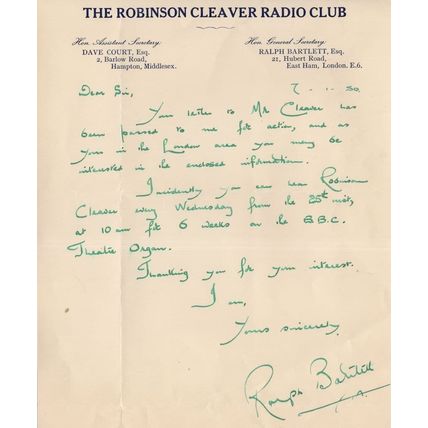 THE ROBINSON CLEAVER RADIO CLUB
Hon. Assistant Secretary:
DAVE COURT, Esq.
2, Barlow Road,
Hampton, Middlesex.
Hon. General Secretary:
RALPH BARTLETT, Esq.
21, Hubert Road,
East Ham, London. E.6.
7. 1. 50.
Dear Sir,
Your letter to Mr Cleaver has
been passed to me for action, and as
your in the London area you may be
interested in the enclosed information.
Incidently you can hear Robinson
Cleaver every Wednesday from the 25th inst,
at 10 am for 6 weeks on the B.B.C.
Theatre Organ.
Thanking you for your interest.
I am,
Yours sincerely,
Ralph Bartlett